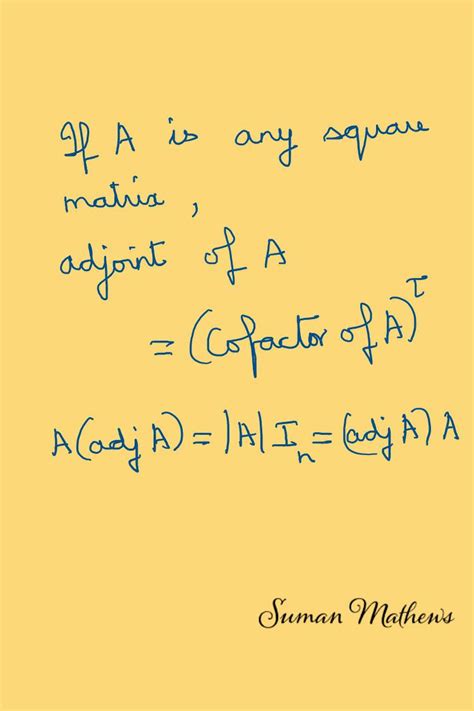 If A is any square
matrix,
adjoint of A
= (Cofactor of A)^T
A(adj A) = |A| I_n = (adj A) A
Suman Mathews